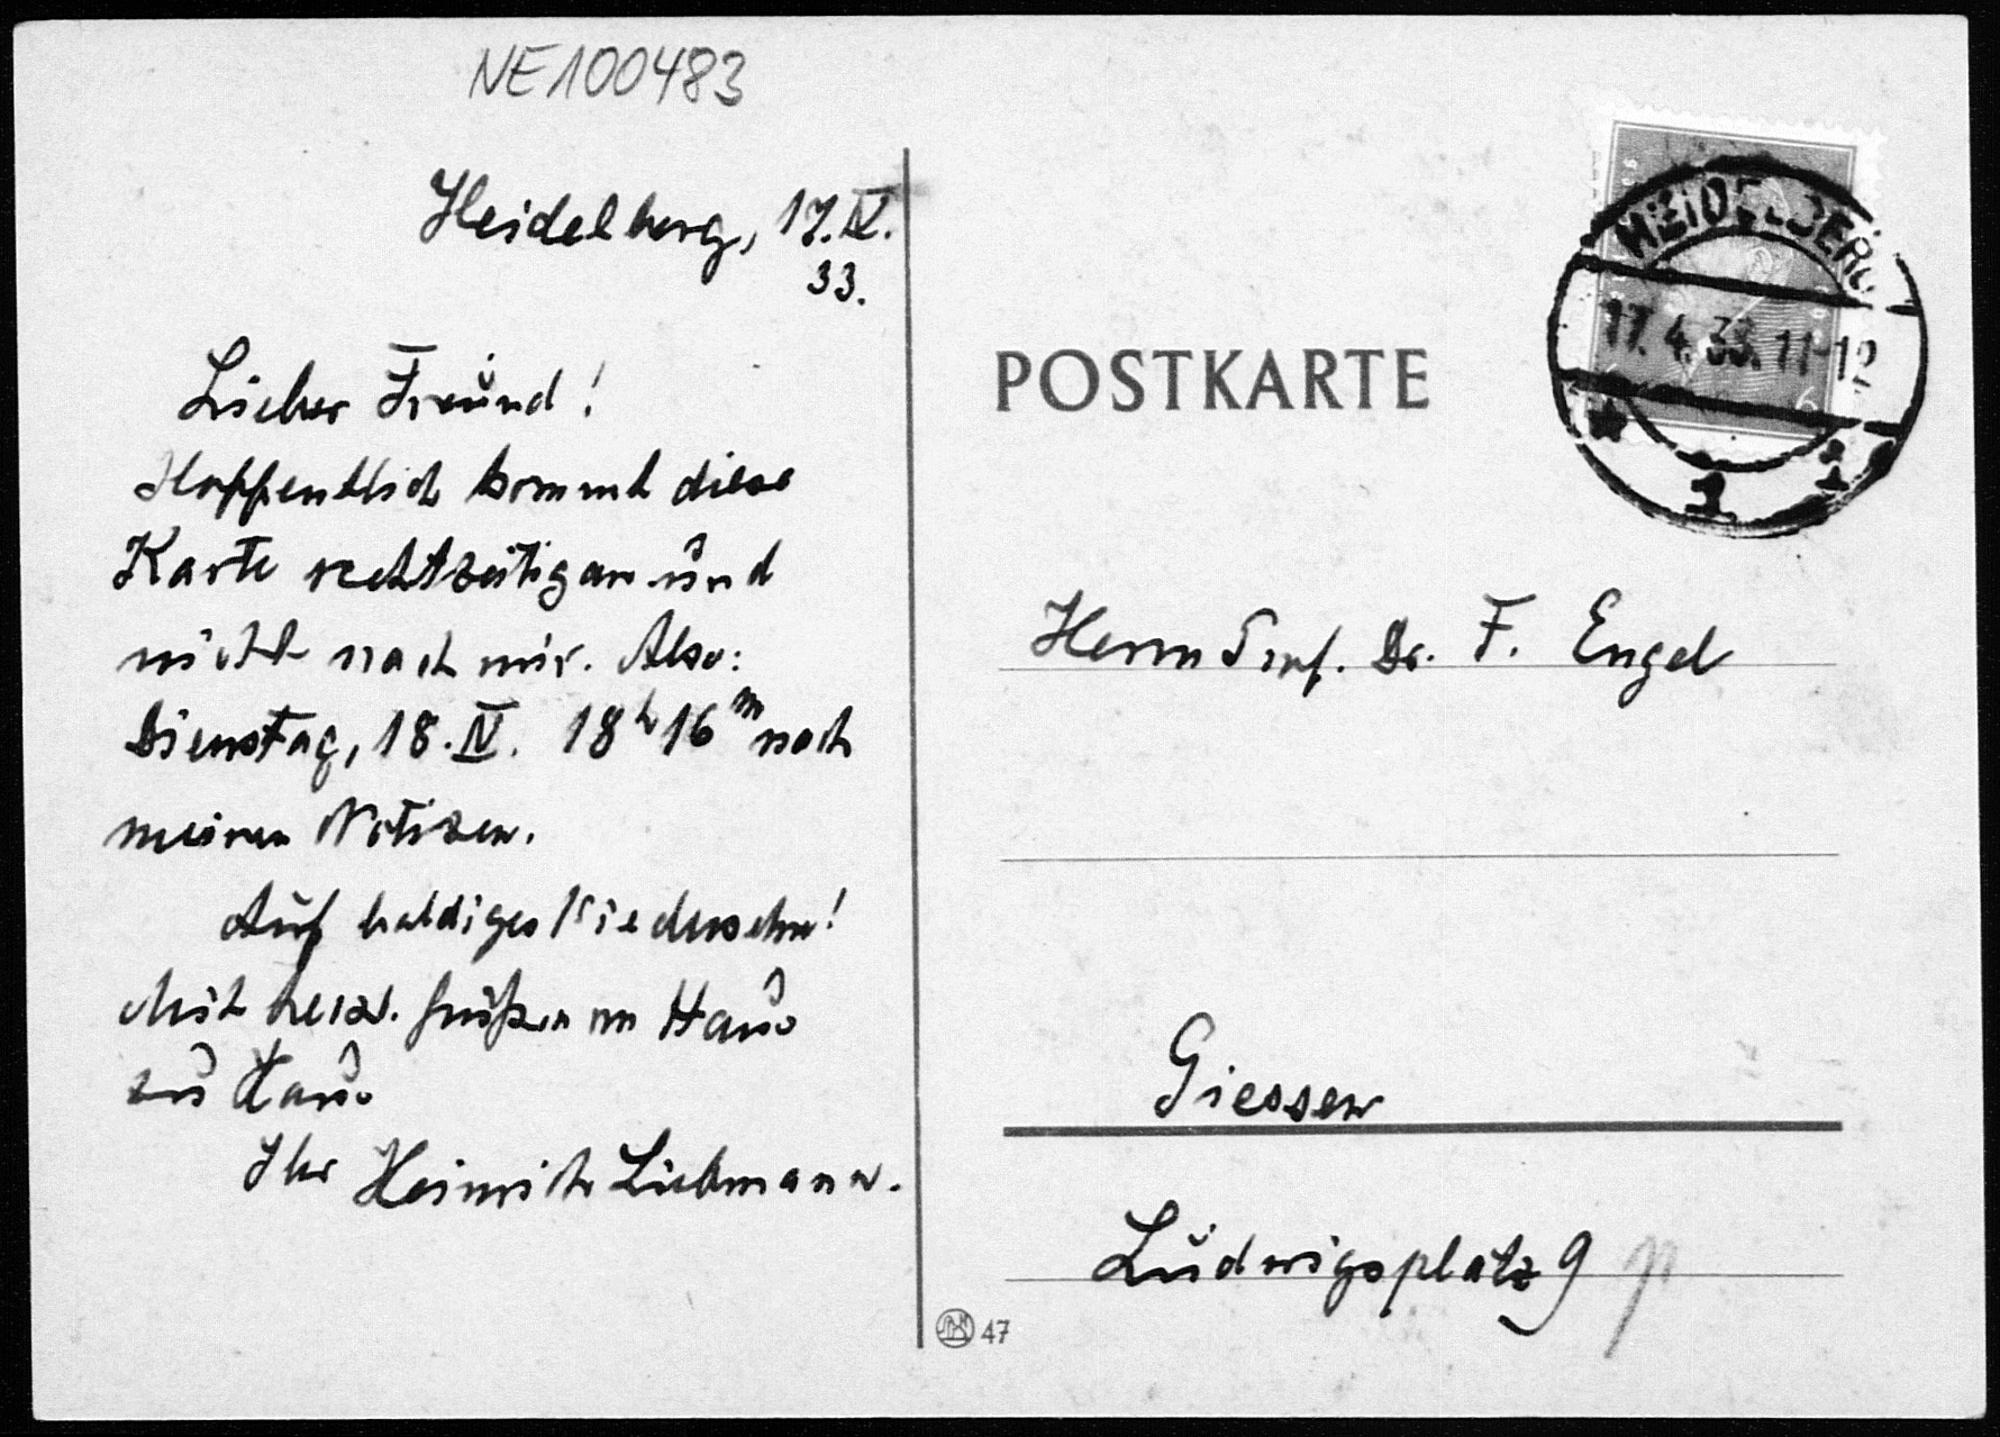 NE100483
Heidelberg, 17.IV.
33.
Lieber Freund!
Hoffentlich kommt diese
Karte rechtzeitig an und
nicht nach mir. Also:
Dienstag, 18.IV. 18h16m nach
meinen Notizen.
Auf baldiges Wiedersehn!
Mit herzl. Grüßen von Haus
zu Haus
Ihr Heinrich Liebmann.
HEIDELBERG
17.4.33.11-12
1
6
POSTKARTE
Herrn Prof. Dr. F. Engel
Giessen
Ludwigsplatz 9
47